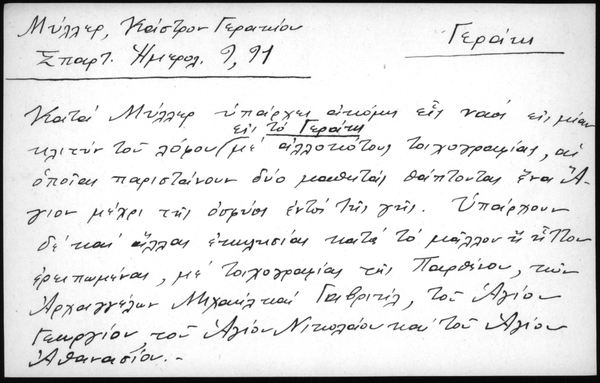 Μύλλερ, Κάστρον Γερακίου
Γεράκι
Σπαρτ. Ημερολ. 9, 91
Κατά Μύλλερ υπάρχει ακόμη εἷς ναός εις μίαν
εις τό Γεράκι
κλιτύν του λόφου (με αλλοκότους τοιχογραφίας, αἱ
ὁποίαι παριστάνουν δύο μαθητάς θάπτοντας ἕνα Ἅ-
γιον μέχρι της οσφύος εντός της γης. Ὑπάρχουν
δέ καί ἄλλαι ἐκκλησίαι κατά τό μᾶλλον ἤ ἧττον
ερειπωμέναι, μέ τοιχογραφίας της Παρθένου, των
Ἀρχαγγέλων Μιχαήλ καί Γαβριήλ, τοῦ Ἁγίου
Γεωργίου, του Ἁγίου Νικολάου και του Ἁγίου
Ἀθανασίου.-